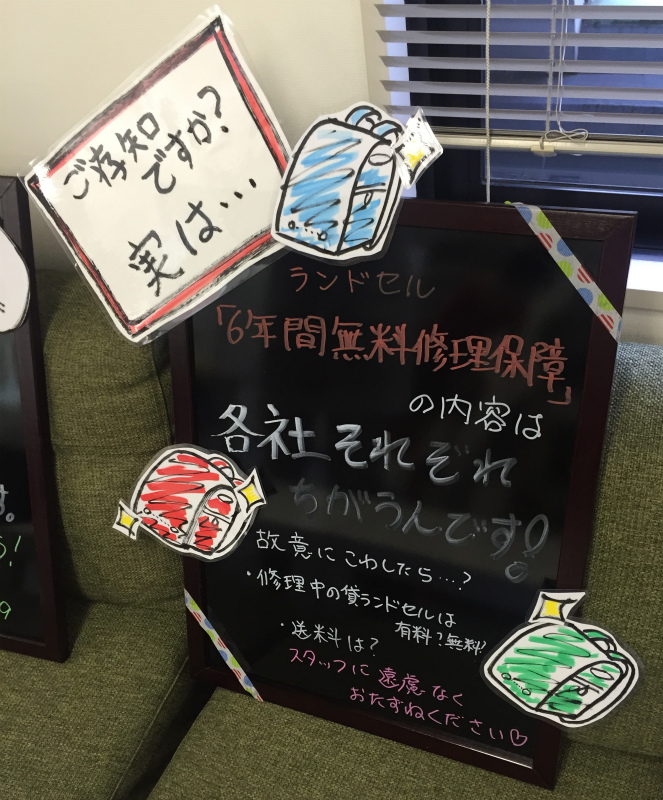 ご存知
ですか?
実は…
ランドセル
「6年間無料修理保障」
の内容は
各社それぞれ
ちがうんです!
故意にこわしたら…?
・修理中の貸ランドセルは
有料?無料?
・送料は?
スタッフに遠慮なく
おたずねください♡
す。
!
9